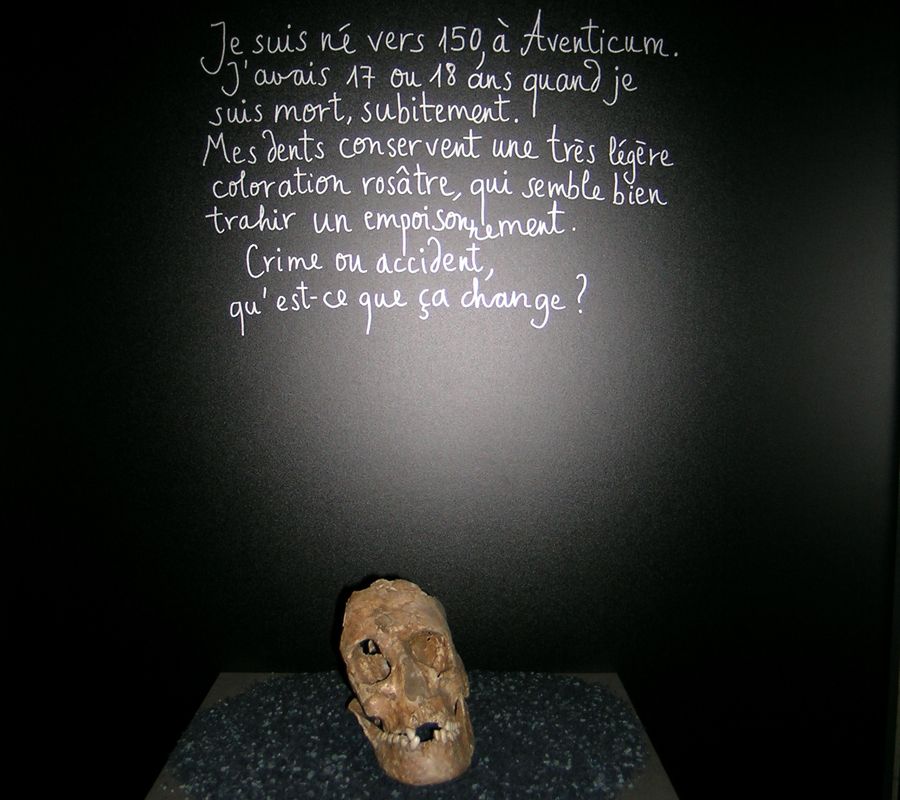 Je suis né vers 150, à Aventicum.
J'avais 17 ou 18 ans quand je
suis mort, subitement.
Mes dents conservent une très légère
coloration rosâtre, qui semble bien
trahir un empoisonnement.
Crime ou accident,
qu'est-ce que ça change ?